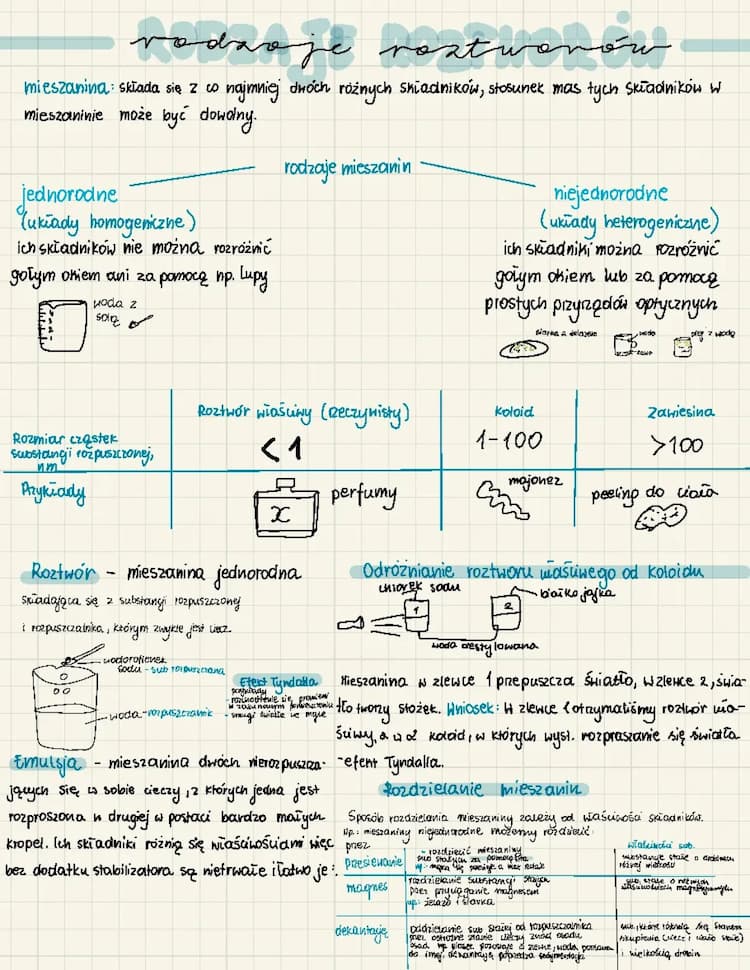 rodzaje roztworów
mieszanina: składa się z co najmniej dwóch różnych składników, stosunek mas tych składników w
mieszaninie może być dowolny.
rodzaje mieszanin
jednorodne
(układy homogeniczne)
ich składników nie można rozróżnić
gołym okiem ani za pomocą np. lupy
woda z
solą
niejednorodne
(układy heterogeniczne)
ich składniki można rozróżnić
gołym okiem lub za pomocą
prostych przyrządów optycznych
siarka z żelazem
woda
olej z wodą
Roztwór właściwy (rzeczywisty)
Koloid
Zawiesina
Rozmiar cząstek
substancji rozpuszczonej,
nm
<1
1-100
>100
Przykłady
x
perfumy
majonez
peeling do ciała
Roztwór - mieszanina jednorodna
składająca się z substancji rozpuszczonej
i rozpuszczalnika, którym zwykle jest ciecz.
wodorotlenek
sodu - sub rozpuszczana
woda - rozpuszczalnik
Efekt Tyndalla
przykłady
- smugi świetlne we mgle
Emulsja - mieszanina dwóch nierozpuszcza-
jących się w sobie cieczy, z których jedna jest
rozproszona w drugiej w postaci bardzo małych
kropel. Ich składniki różnią się właściwościami więc
bez dodatku stabilizatora są nietrwałe i łatwo je:
Odróżnianie roztworu właściwego od koloidu
chlorek sodu
1
2
białko jajka
woda destylowana
Mieszanina w zlewce 1 przepuszcza światło, w zlewce 2, świa-
tło tworzy stożek. Wniosek: W zlewce 1 otrzymaliśmy roztwór wła-
ściwy, a w 2 koloid, w których wyst. rozpraszanie się światła
- efekt Tyndalla.
Rozdzielanie mieszanin
Sposób rozdzielania mieszaniny zależy od właściwości składników.
Np.: mieszaniny niejednorodne możemy rozdzielić
przez
właściwości sub.
przesiewanie
- rozdzielić mieszaniny
substancje stałe o drobinach
różnej wielkości
magnes
rozdzielanie substancji stałych
przez przyciąganie magnesem
np: żelazo i siarka
sub. stałe o różnych
właściwościach magnetycznych
dekantację
oddzielanie sub stałej od rozpuszczalnika
przez ostrożne zlanie cieczy znad osadu
do innej, dekantację poprzedza sedymentacja
sub., które różnią się stanem
skupienia (ciecz i ciało stałe)
i wielkością drobin